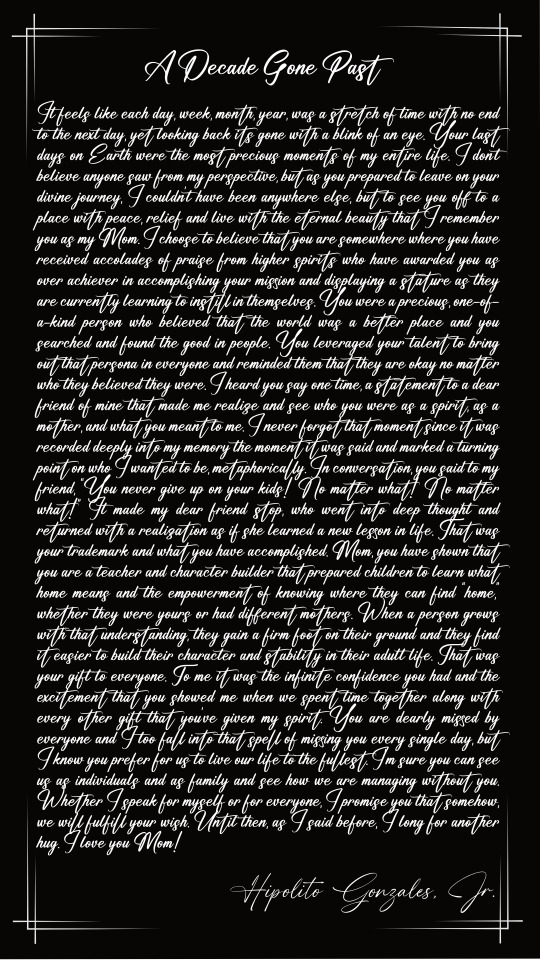 A Decade Gone Past
It feels like each day, week, month, year, was a stretch of time with no end
to the next day, yet looking back its gone with a blink of an eye. Your last
days on Earth were the most precious moments of my entire life. I don't
believe anyone saw from my perspective, but as you prepared to leave on your
divine journey, I couldn't have been anywhere else, but to see you off to a
place with peace, relief and live with the eternal beauty that I remember
you as my Mom. I choose to believe that you are somewhere where you have
received accolades of praise from higher spirits who have awarded you as
over achiever in accomplishing your mission and displaying a stature as they
are currently learning to instill in themselves. You were a precious, one-of-
a-kind person who believed that the world was a better place and you
searched and found the good in people. You leveraged your talent to bring
out that persona in everyone and reminded them that they are okay no matter
who they believed they were. I heard you say one time, a statement to a dear
friend of mine that made me realize and see who you were as a spirit, as a
mother, and what you meant to me. I never forgot that moment since it was
recorded deeply into my memory the moment it was said and marked a turning
point on who I wanted to be, metaphorically. In conversation, you said to my
friend, "You never give up on your kids! No matter what! No matter
what!" It made my dear friend stop, who went into deep thought and
returned with a realization as if she learned a new lesson in life. That was
your trademark and what you have accomplished. Mom, you have shown that
you are a teacher and character builder that prepared children to learn what
home means and the empowerment of knowing where they can find "home,"
whether they were yours or had different mothers. When a person grows
with that understanding, they gain a firm foot on their ground and they find
it easier to build their character and stability in their adult life. That was
your gift to everyone. To me it was the infinite confidence you had and the
excitement that you showed me when we spent time together along with
every other gift that you've given my spirit. You are dearly missed by
everyone and I too fall into that spell of missing you every single day, but
I know you prefer for us to live our life to the fullest. I'm sure you can see
us as individuals and as family and see how we are managing without you.
Whether I speak for myself or for everyone, I promise you that somehow,
we will fulfill your wish. Until then, as I said before, I long for another
hug. I love you Mom!
Hipolito Gonzales, Jr.